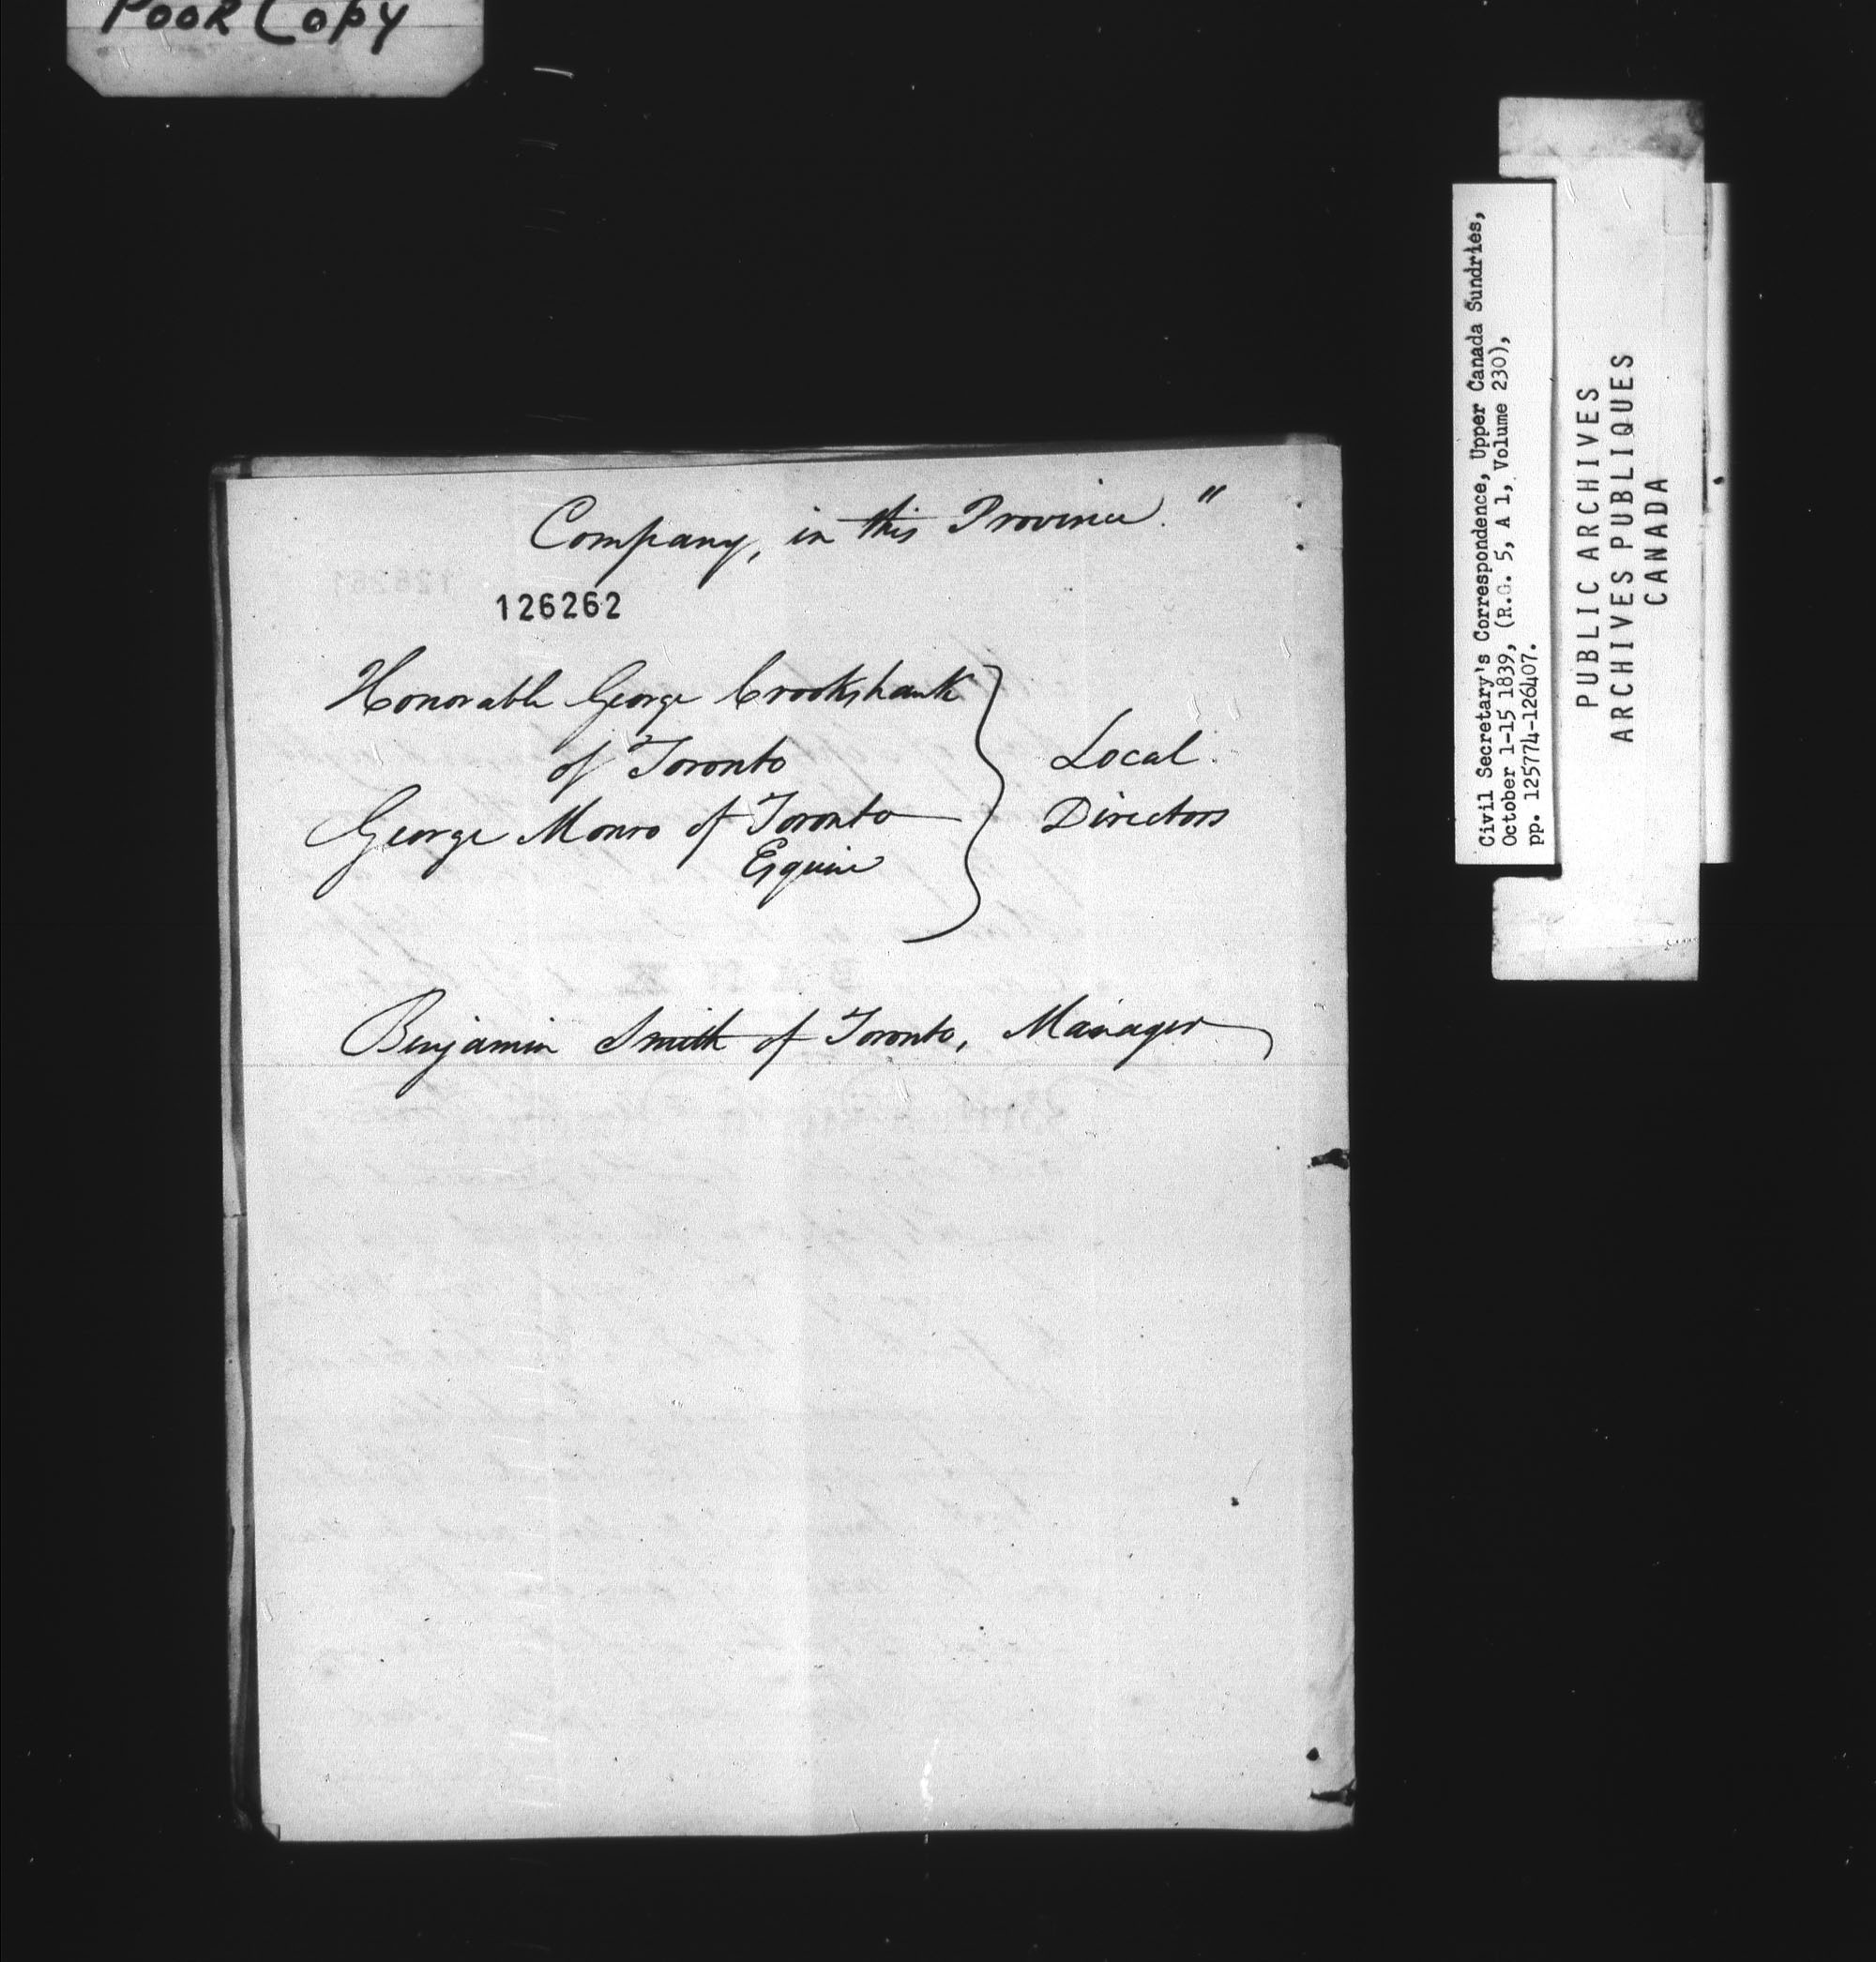 Poor Copy
Company, in this Province."
126262
Honorable George Crookshank
of Toronto
George Monro of Toronto
Esquire
Local
Directors
Benjamin Smith of Toronto, Manager
Civil Secretary's Correspondence, Upper Canada Sundries,
October 1-15 1839, (R.G. 5, A 1, Volume 230),
pp. 125774-126407.
PUBLIC ARCHIVES
ARCHIVES PUBLIQUES
CANADA